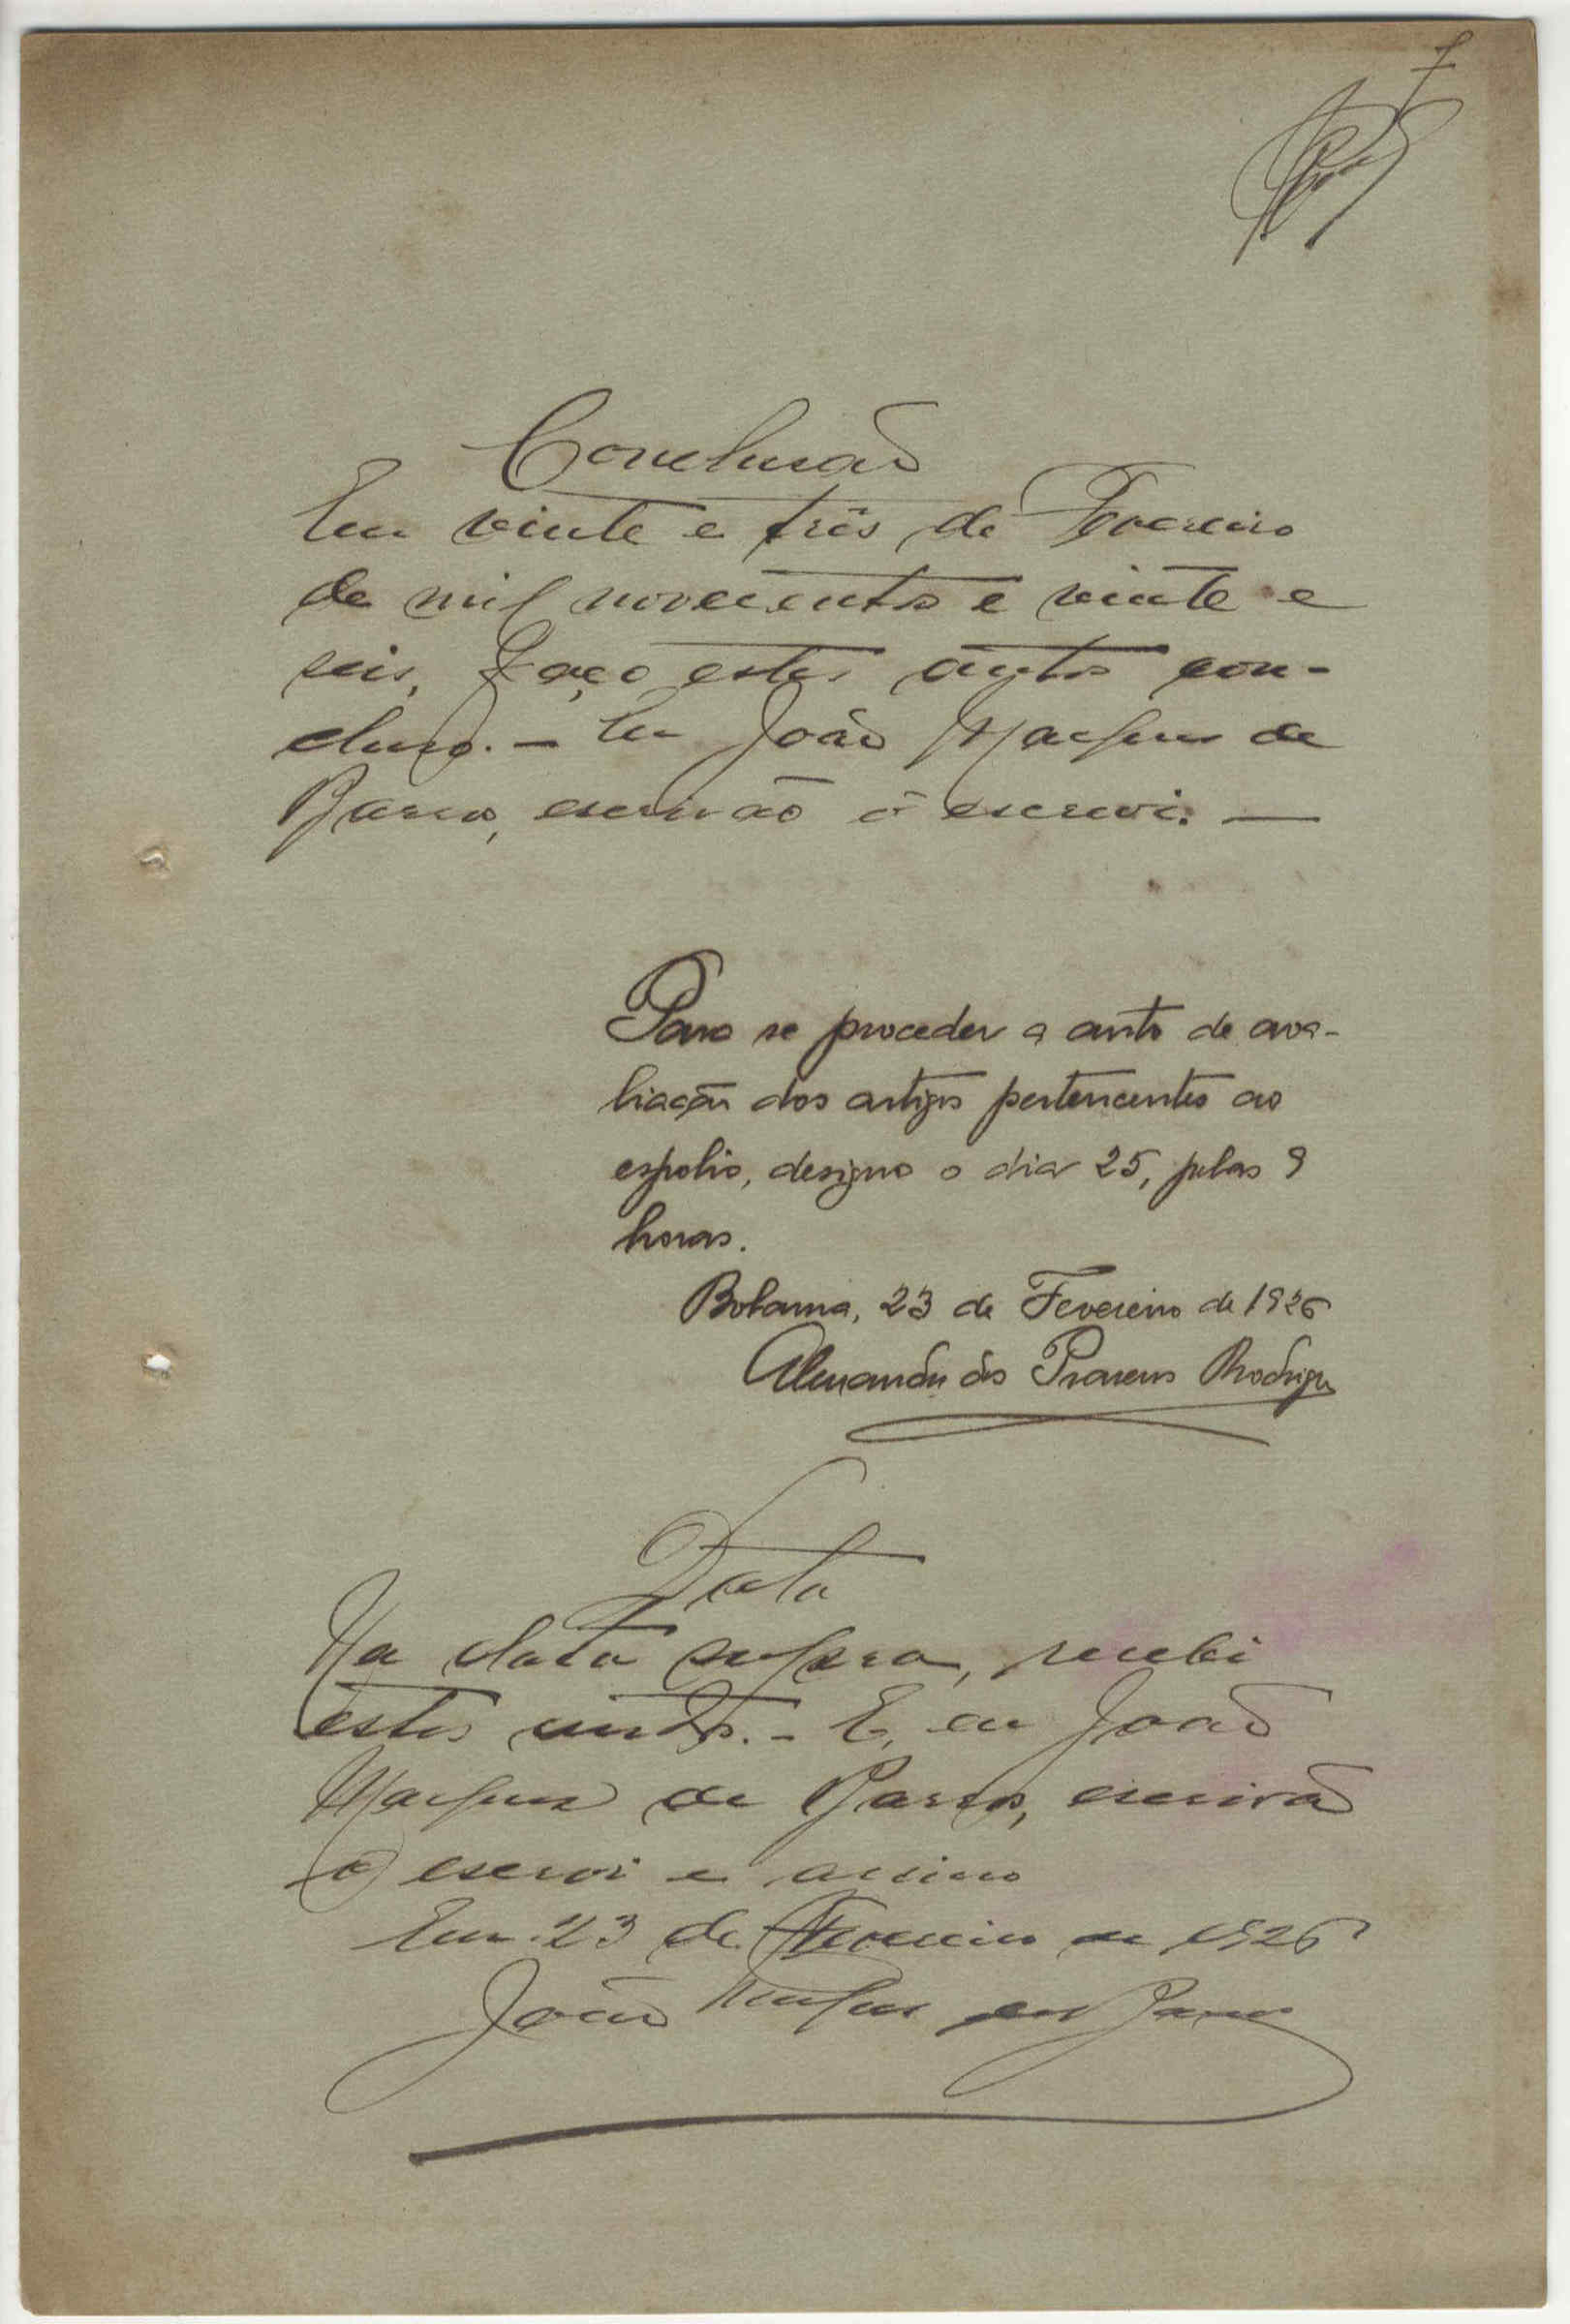 7
Conclusão
Em vinte e três de Fevereiro
de mil novecentos e vinte e
seis, faço estes autos con-
clusos. - Eu João Marques de
Barros, escrivão o escrevi. —
Para se proceder a auto de ava-
liação dos artigos pertencentes ao
espolio, designo o dia 25, pelas 9
horas.
Bolama, 23 de Fevereiro de 1926
dos Rodrigues
Data
Na data supra, recebi
estes autos. - E, eu João
Marques de Barros, escrivão
o escrevi e assino
Em 23 de Fevereiro de 1926
João Marques de Barros